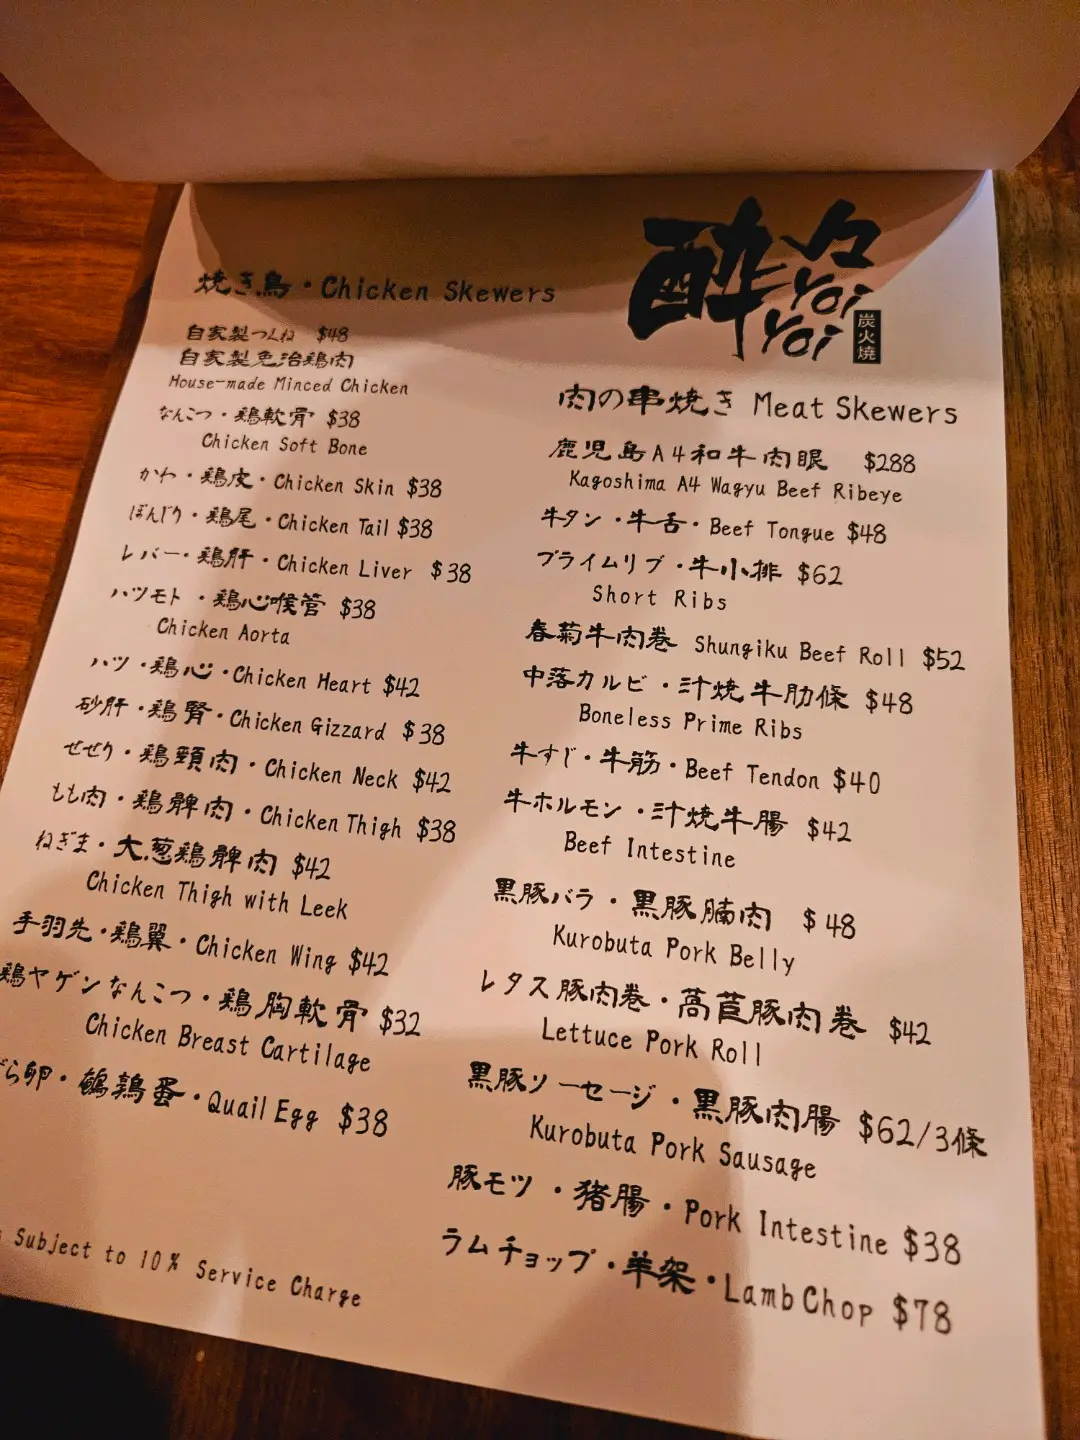 酔々
Yoi
Yoi
炭火焼
焼き鳥・Chicken Skewers
自家製つくね $48
自家製免治鶏肉
House-made Minced Chicken
なんこつ・鶏軟骨 $38
Chicken Soft Bone
かわ・鶏皮・Chicken Skin $38
ぼんじり・鶏尾・Chicken Tail $38
レバー・鶏肝・Chicken Liver $38
ハツモト・鶏心喉管 $38
Chicken Aorta
ハツ・鶏心・Chicken Heart $42
砂肝・鶏腎・Chicken Gizzard $38
せせり・鶏頸肉・Chicken Neck $42
もも肉・鶏髀肉・Chicken Thigh $38
ねぎま・大葱鶏髀肉 $42
Chicken Thigh with Leek
手羽先・鶏翼・Chicken Wing $42
鶏ヤゲンなんこつ・鶏胸軟骨 $32
Chicken Breast Cartilage
ら卵・鵪鶉蛋・Quail Egg $38
Subject to 10% Service Charge
肉の串焼き Meat Skewers
鹿児島A4和牛肉眼 $288
Kagoshima A4 Wagyu Beef Ribeye
牛タン・牛舌・Beef Tongue $48
プライムリブ・牛小排 $62
Short Ribs
春菊牛肉巻 Shungiku Beef Roll $52
中落カルビ・汁焼牛肋條 $48
Boneless Prime Ribs
牛すじ・牛筋・Beef Tendon $40
牛ホルモン・汁焼牛腸 $42
Beef Intestine
黒豚バラ・黒豚腩肉 $48
Kurobuta Pork Belly
レタス豚肉巻・萵苣豚肉巻 $42
Lettuce Pork Roll
黒豚ソーセージ・黒豚肉腸 $62/3條
Kurobuta Pork Sausage
豚モツ・猪腸・Pork Intestine $38
ラムチョップ・羊架・Lamb Chop $78